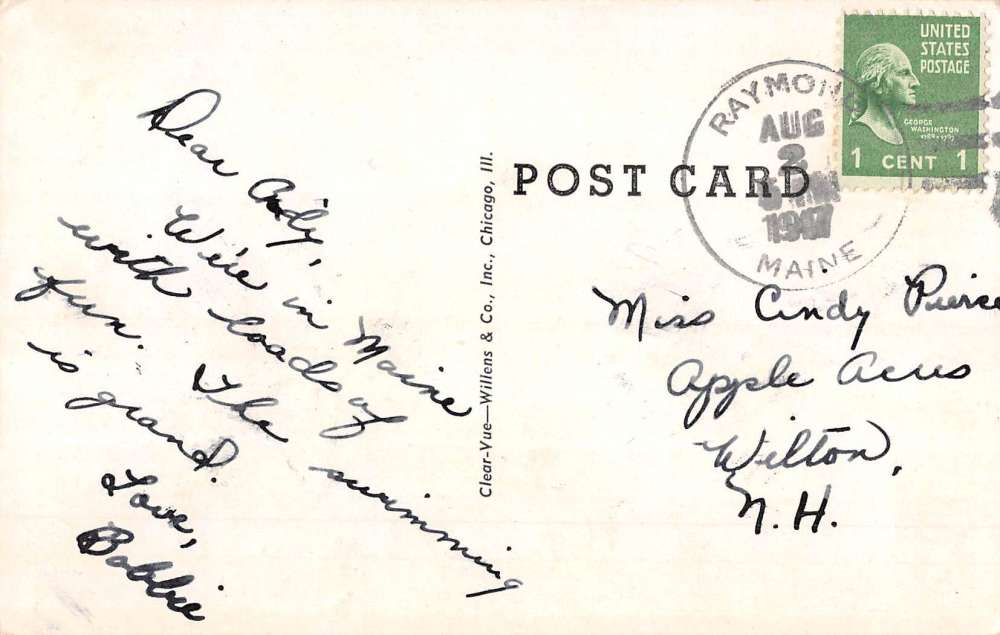 Dear Cindy,
We're in Maine
with loads of
fun. The swimming
is grand.
Love,
Bobbie
Clear-Vue—Willens & Co., Inc., Chicago, Ill.
POST CARD
RAYMOND
AUG
2
1947
MAINE
UNITED
STATES
POSTAGE
GEORGE
WASHINGTON
1 CENT 1
Miss Cindy Pierce
Apple Acres
Wilton,
N.H.